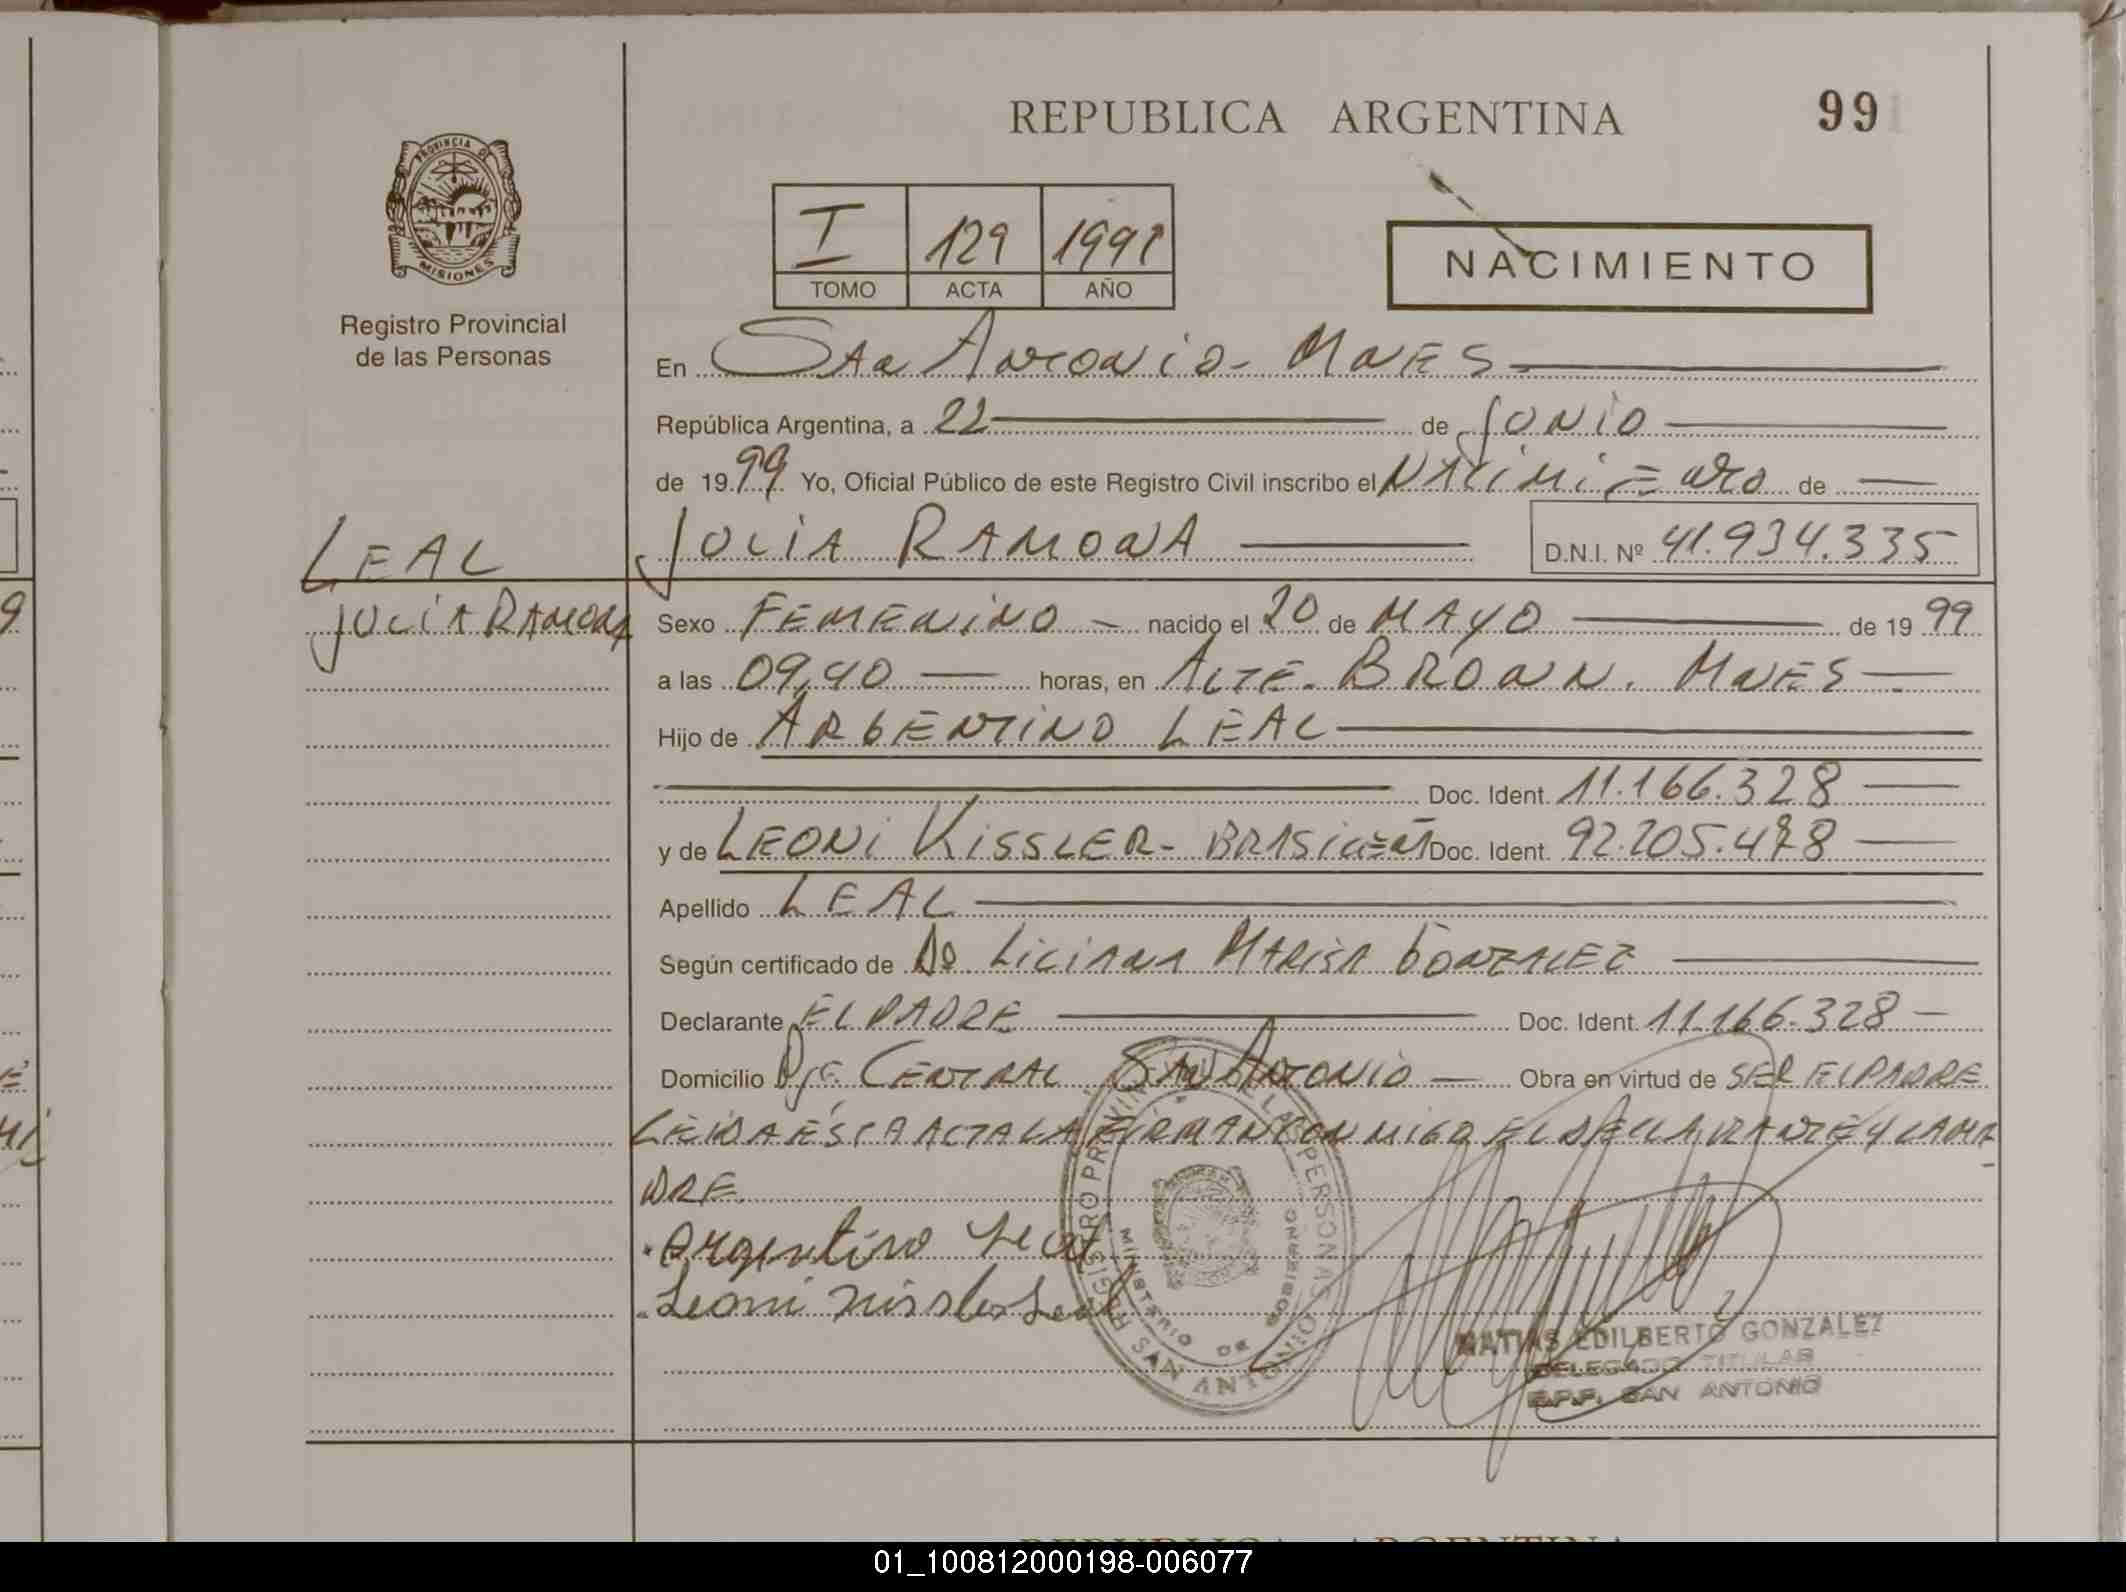 REPUBLICA ARGENTINA
99
PROVINCIA DE
MISIONES
Registro Provincial
de las Personas
I 129 1999
TOMO ACTA AÑO
NACIMIENTO
En San Antonio - Mnes
República Argentina, a 22 de Junio
de 1999 Yo, Oficial Público de este Registro Civil inscribo el Nacimiento de
LEAL
Julia Ramona
JULIA RAMONA D.N.I. Nº 41.934.335
Sexo FEMENINO nacido el 20 de MAYO de 1999
a las 09,40 horas, en ALTE. BROWN. MNES
Hijo de ARGENTINO LEAL
Doc. Ident. 11.166.328
y de LEONI KISSLER - Doc. Ident. 92.205.478
Apellido LEAL
Según certificado de LILIANA MARISA GONZALEZ
Declarante EL PADRE Doc. Ident. 11.166.328
Domicilio Pje CENTRAL SAN ANTONIO Obra en virtud de SER EL PADRE
LEIDA ESTA ACTA LA FIRMAN CONMIGO EL DECLARANTE Y LA MA-
DRE.
Argentino Leal
Leoni Kissler Leal
REGISTRO PROVINCIAL DE LAS PERSONAS
MINISTERIO DE GOBIERNO
SAN ANTONIO
MATIAS EDILBERTO GONZALEZ
DELEGADO TITULAR
R.P.P. SAN ANTONIO
REPUBLICA ARGENTINA
01_100812000198-006077